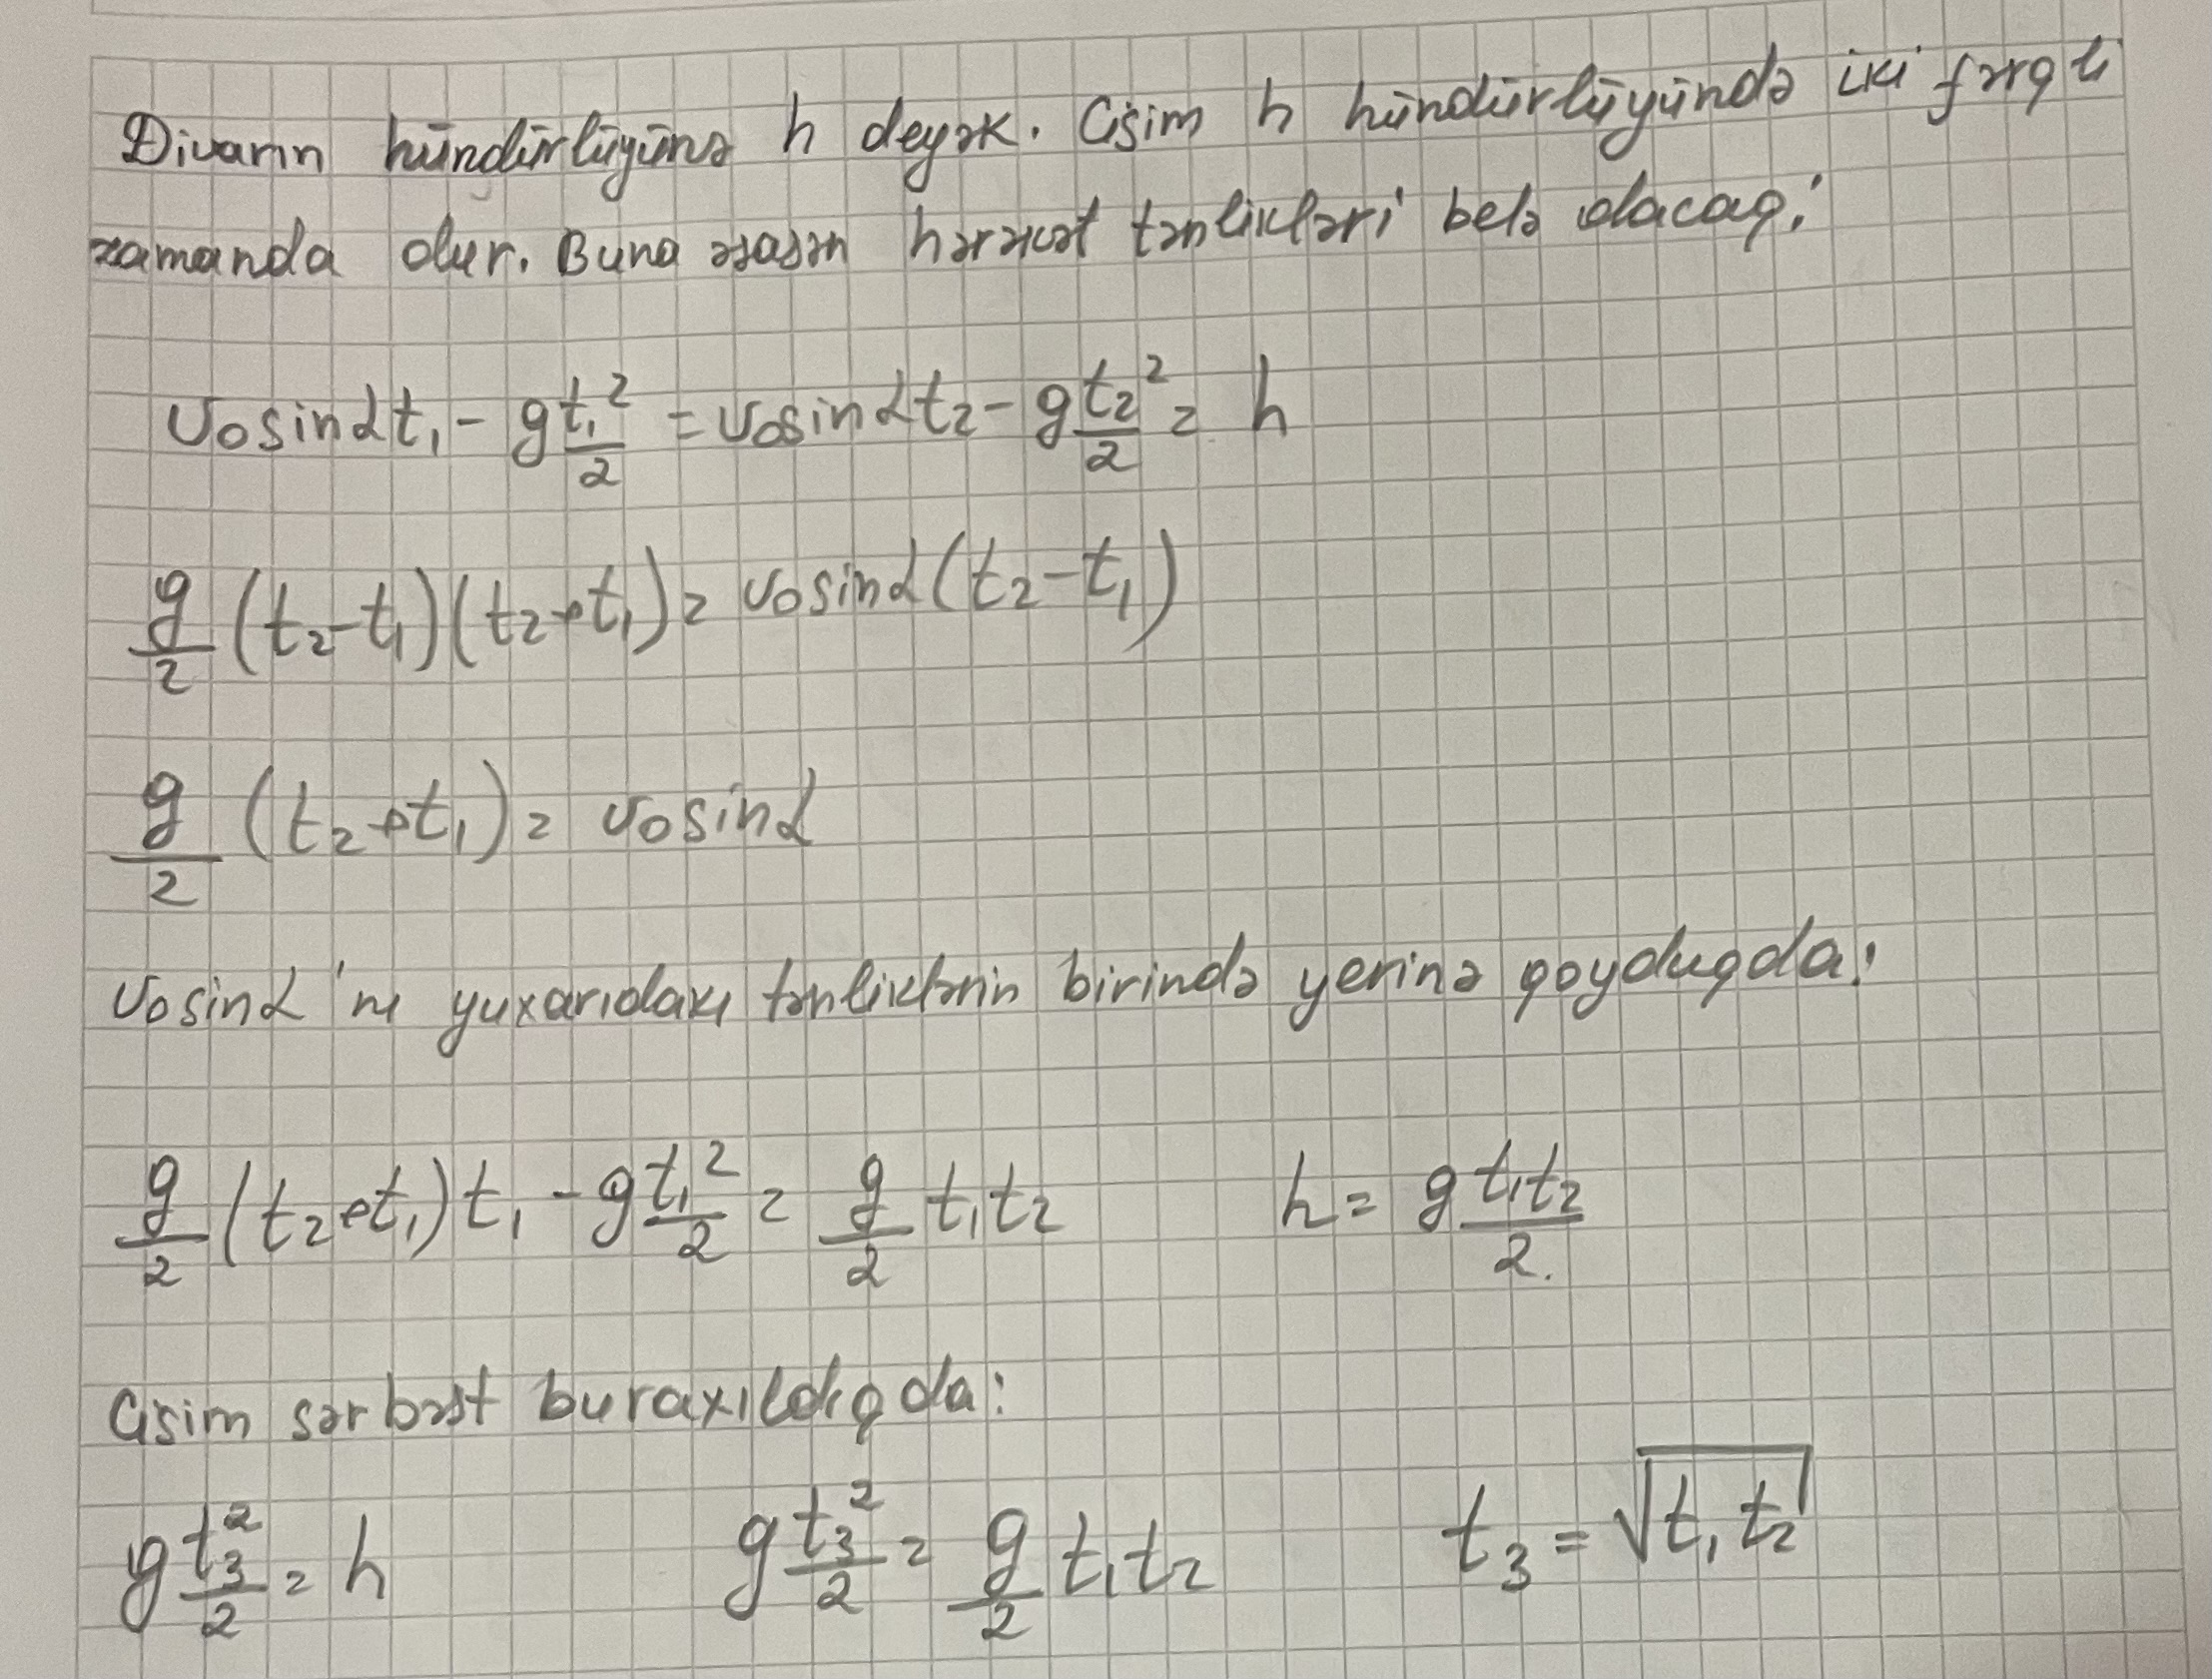 Divarın hündürlüyünə h deyək. Cisim h hündürlüyündə iki fərqli
zamanda olur. Buna əsasən hərəkət tənlikləri belə olacaq:
v₀sinαt₁ - gt₁²/2 = v₀sinαt₂ - gt₂²/2 = h
g/2 (t₂-t₁)(t₂+t₁) = v₀sinα(t₂-t₁)
g/2 (t₂+t₁) = v₀sinα
v₀sinα'nı yuxarıdakı tənliklərin birində yerinə qoyduqda:
g/2 (t₂+t₁)t₁ - gt₁²/2 = g/2 t₁t₂ h = gt₁t₂/2.
Cisim sərbəst buraxıldıqda:
gt₃²/2 = h gt₃²/2 = g/2 t₁t₂ t₃ = √t₁t₂